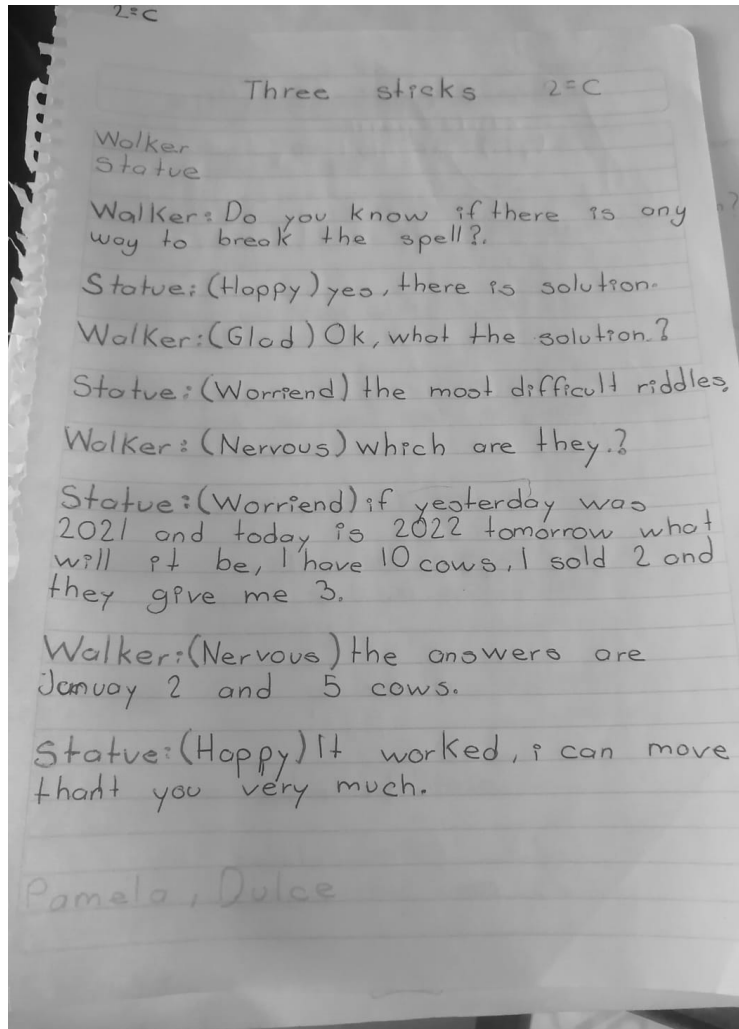 2=C
Three sticks 2=C
Walker
Statue
Walker: Do you know if there is any
way to break the spell?.
Statue: (Happy) yes, there is solution.
Walker: (Glad) Ok, what the solution.?
Statue: (Worriend) the most difficult riddles,
Walker: (Nervous) which are they.?
Statue: (Worriend) if yesterday was
2021 and today is 2022 tomorrow what
will it be, I have 10 cows, I sold 2 and
they give me 3.
Walker: (Nervous) the answers are
Januay 2 and 5 cows.
Statue: (Happy) It worked, i can move
thant you very much.
Pamela, Dulce